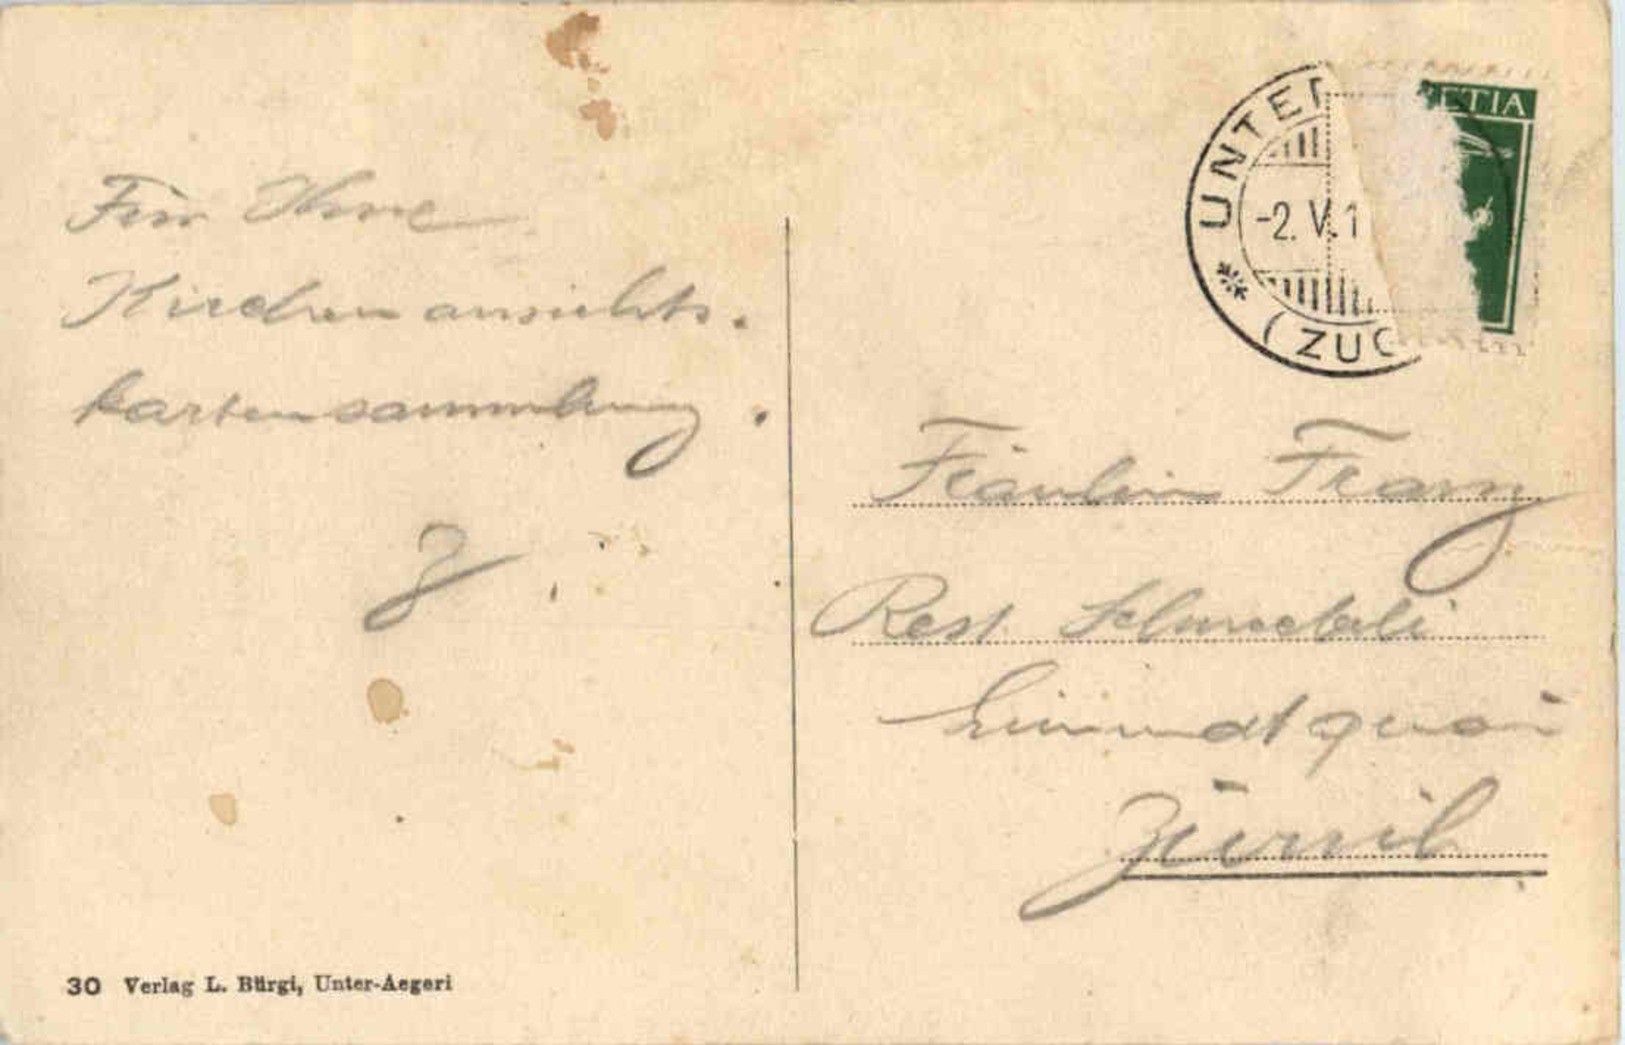 Für Ihre
Kirchenansichts-
kartensammlung.
Z
UNTER
-2. V. 1
(ZUG
ETIA
Fräulein Franz
Rest. Schmetteli
Limmatquai
Zürich
30 Verlag L. Bürgi, Unter-Aegeri